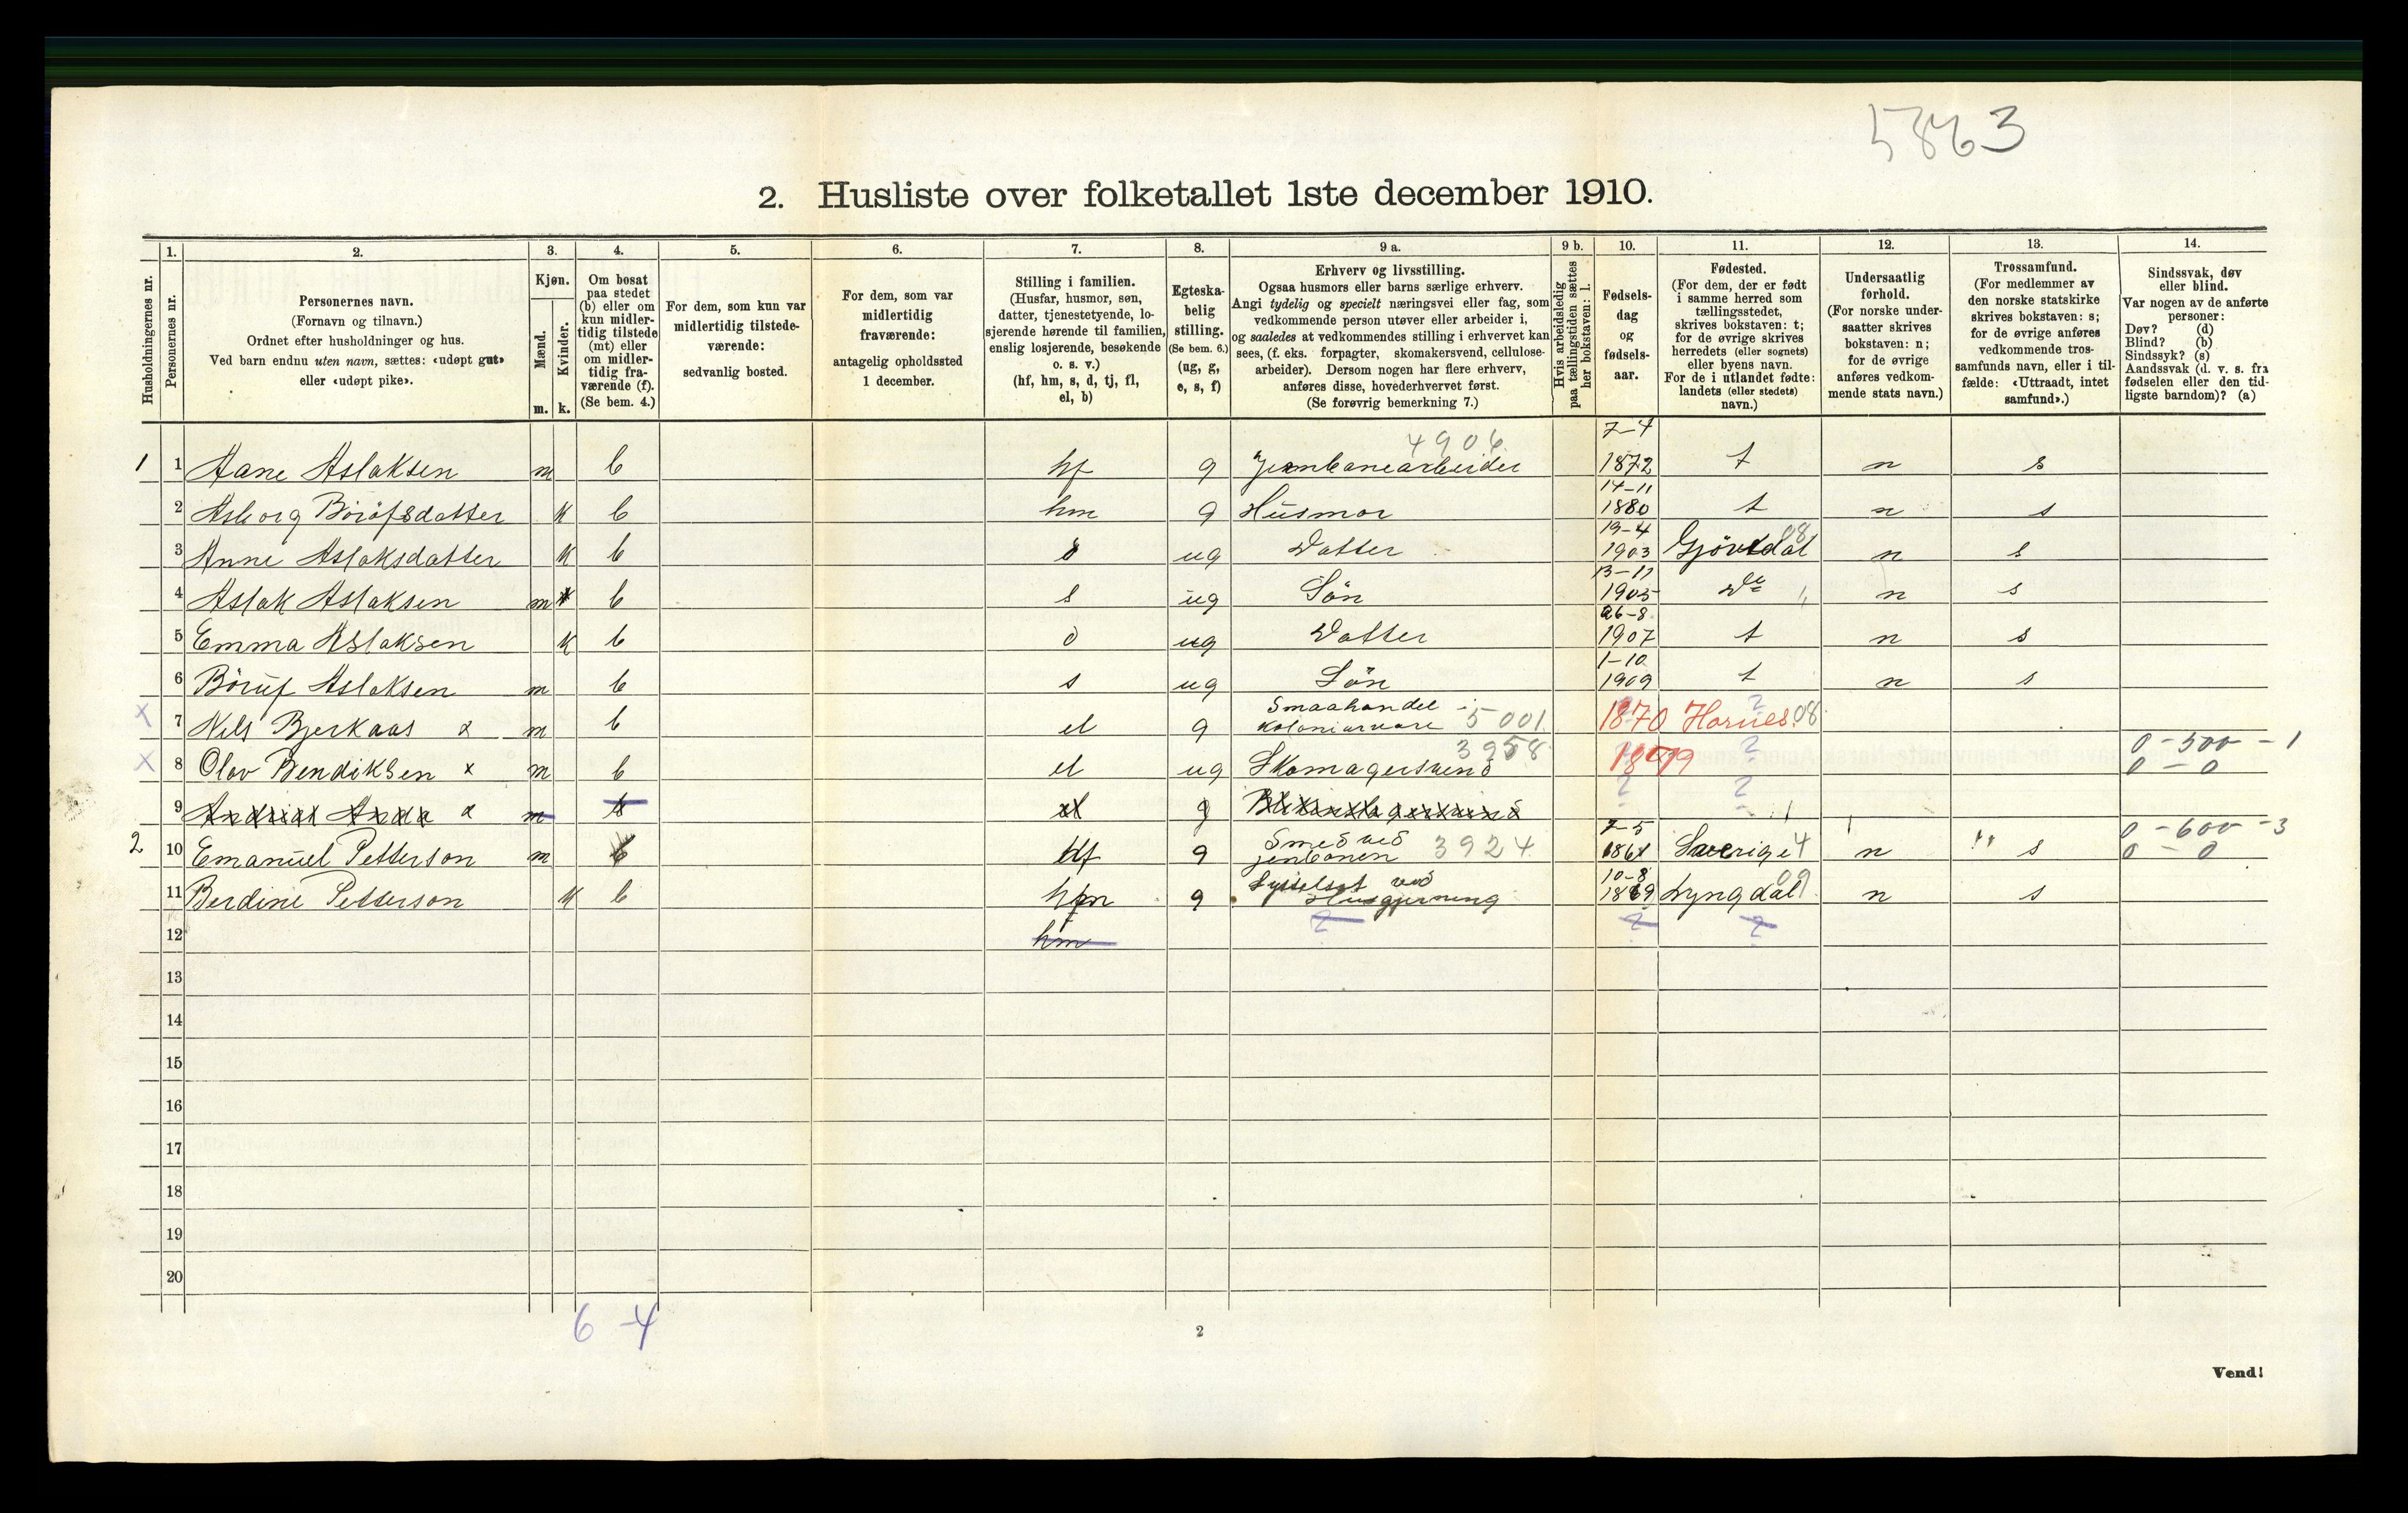 5863
2. Husliste over folketallet 1ste december 1910.
Husholdningernes nr.
1.
Personernes nr.
2.
Personernes navn.
(Fornavn og tilnavn.)
Ordnet efter husholdninger og hus.
Ved barn endnu uten navn, sættes: «udøpt gut»
eller «udøpt pike».
3.
Kjøn.
Mænd.
Kvinder.
m. k.
4.
Om bosat
paa stedet
(b) eller om
kun midler-
tidig tilstede
(mt) eller
om midler-
tidig fra-
værende (f).
(Se bem. 4.)
5.
For dem, som kun var
midlertidig tilstede-
værende:
sedvanlig bosted.
6.
For dem, som var
midlertidig
fraværende:
antagelig opholdssted
1 december.
7.
Stilling i familien.
(Husfar, husmor, søn,
datter, tjenestetyende, lo-
sjerende hørende til familien,
enslig losjerende, besøkende
o. s. v.)
(hf, hm, s, d, tj, fl,
el, b)
8.
Egteska-
belig
stilling.
(Se bem. 6.)
(ug, g,
e, s, f)
9 a.
Erhverv og livsstilling.
Ogsaa husmors eller barns særlige erhverv.
Angi tydelig og specielt næringsvei eller fag, som
vedkommende person utøver eller arbeider i,
og saaledes at vedkommendes stilling i erhvervet kan
sees, (f. eks. forpagter, skomakersvend, cellulose-
arbeider). Dersom nogen har flere erhverv,
anføres disse, hovederhvervet først.
(Se forøvrig bemerkning 7.)
9 b.
Hvis arbeidsledig
paa tællingstiden sættes
her bokstaven: l.
10.
Fødsels-
dag
og
fødsels-
aar.
11.
Fødested.
(For dem, der er født
i samme herred som
tællingsstedet,
skrives bokstaven: t;
for de øvrige skrives
herredets (eller sognets)
eller byens navn.
For de i utlandet fødte:
landets (eller stedets)
navn.)
12.
Undersaatlig
forhold.
(For norske under-
saatter skrives
bokstaven: n;
for de øvrige
anføres vedkom-
mende stats navn.)
13.
Trossamfund.
(For medlemmer av
den norske statskirke
skrives bokstaven: s;
for de øvrige anføres
vedkommende tros-
samfunds navn, eller i til-
fælde: «Uttraadt, intet
samfund».)
14.
Sindssvak, døv
eller blind.
Var nogen av de anførte
personer:
Døv? (d)
Blind? (b)
Sindssyk? (s)
Aandssvak (d. v. s. fra
fødselen eller den tid-
ligste barndom)? (a)
1 1 Aane Aslaksen m b hf g Jernbanearbeider 4906 7-4 1872 t n s
2 Asborg Börufsdatter k b hm g Husmor 14-11 1880 t n s
3 Anne Aslaksdatter k b d ug Datter 19-4 1903 Gjövdal 08 n s
4 Aslak Aslaksen m b s ug Sön 13-11 1905 do n s
5 Emma Aslaksen k b d ug Datter 26-8 1907 t n s
6 Böruf Aslaksen m b s ug Sön 1-10 1909 t n s
x 7 Nels Bjerkaas x m b el g Smaahandel i kolonialvare 5001 1870 Hornes 08 ?
x 8 Olav Bendiksen x m b el ug Skomagersvend 3958 1879 ? 0-500-1 0-0
9 m b el g ? ?
2 10 Emanuel Petterson m b hf g Smed ved jenbanen 3924 7-5 1861 Sverige 4 n s 0-600-3 0-0
11 Berdine Petterson k b hm g Sysselsat ved Husgjerning 10-8 1869 Lyngdal 09 n s
12 hm ? ? ?
13
14
15
16
17
18
19
20
6-4
2
Vend!